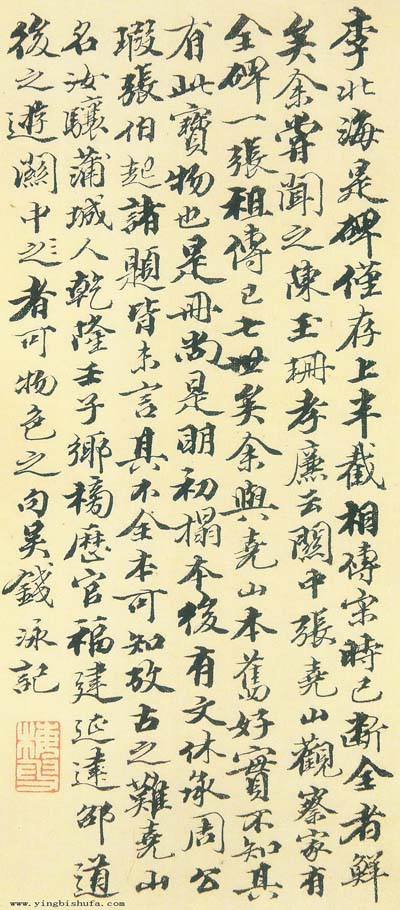 李北海是碑僅存上半截相傳宋時已斷全者鮮
矣余嘗聞之陳玉珊孝廉云關中張堯山觀察家有
全碑一張祖傳已七世矣余與堯山本舊好實不知其
有此寶物也是冊尚是明初搨本後有文休承周公
瑕張伯起諸題皆未言其不全本可知攷古之難堯山
名汝驤蒲城人乾隆壬子鄉榜歷官福建延建邵道
後之遊關中之者可物色之句吳錢泳記
www.yingbishufa.com